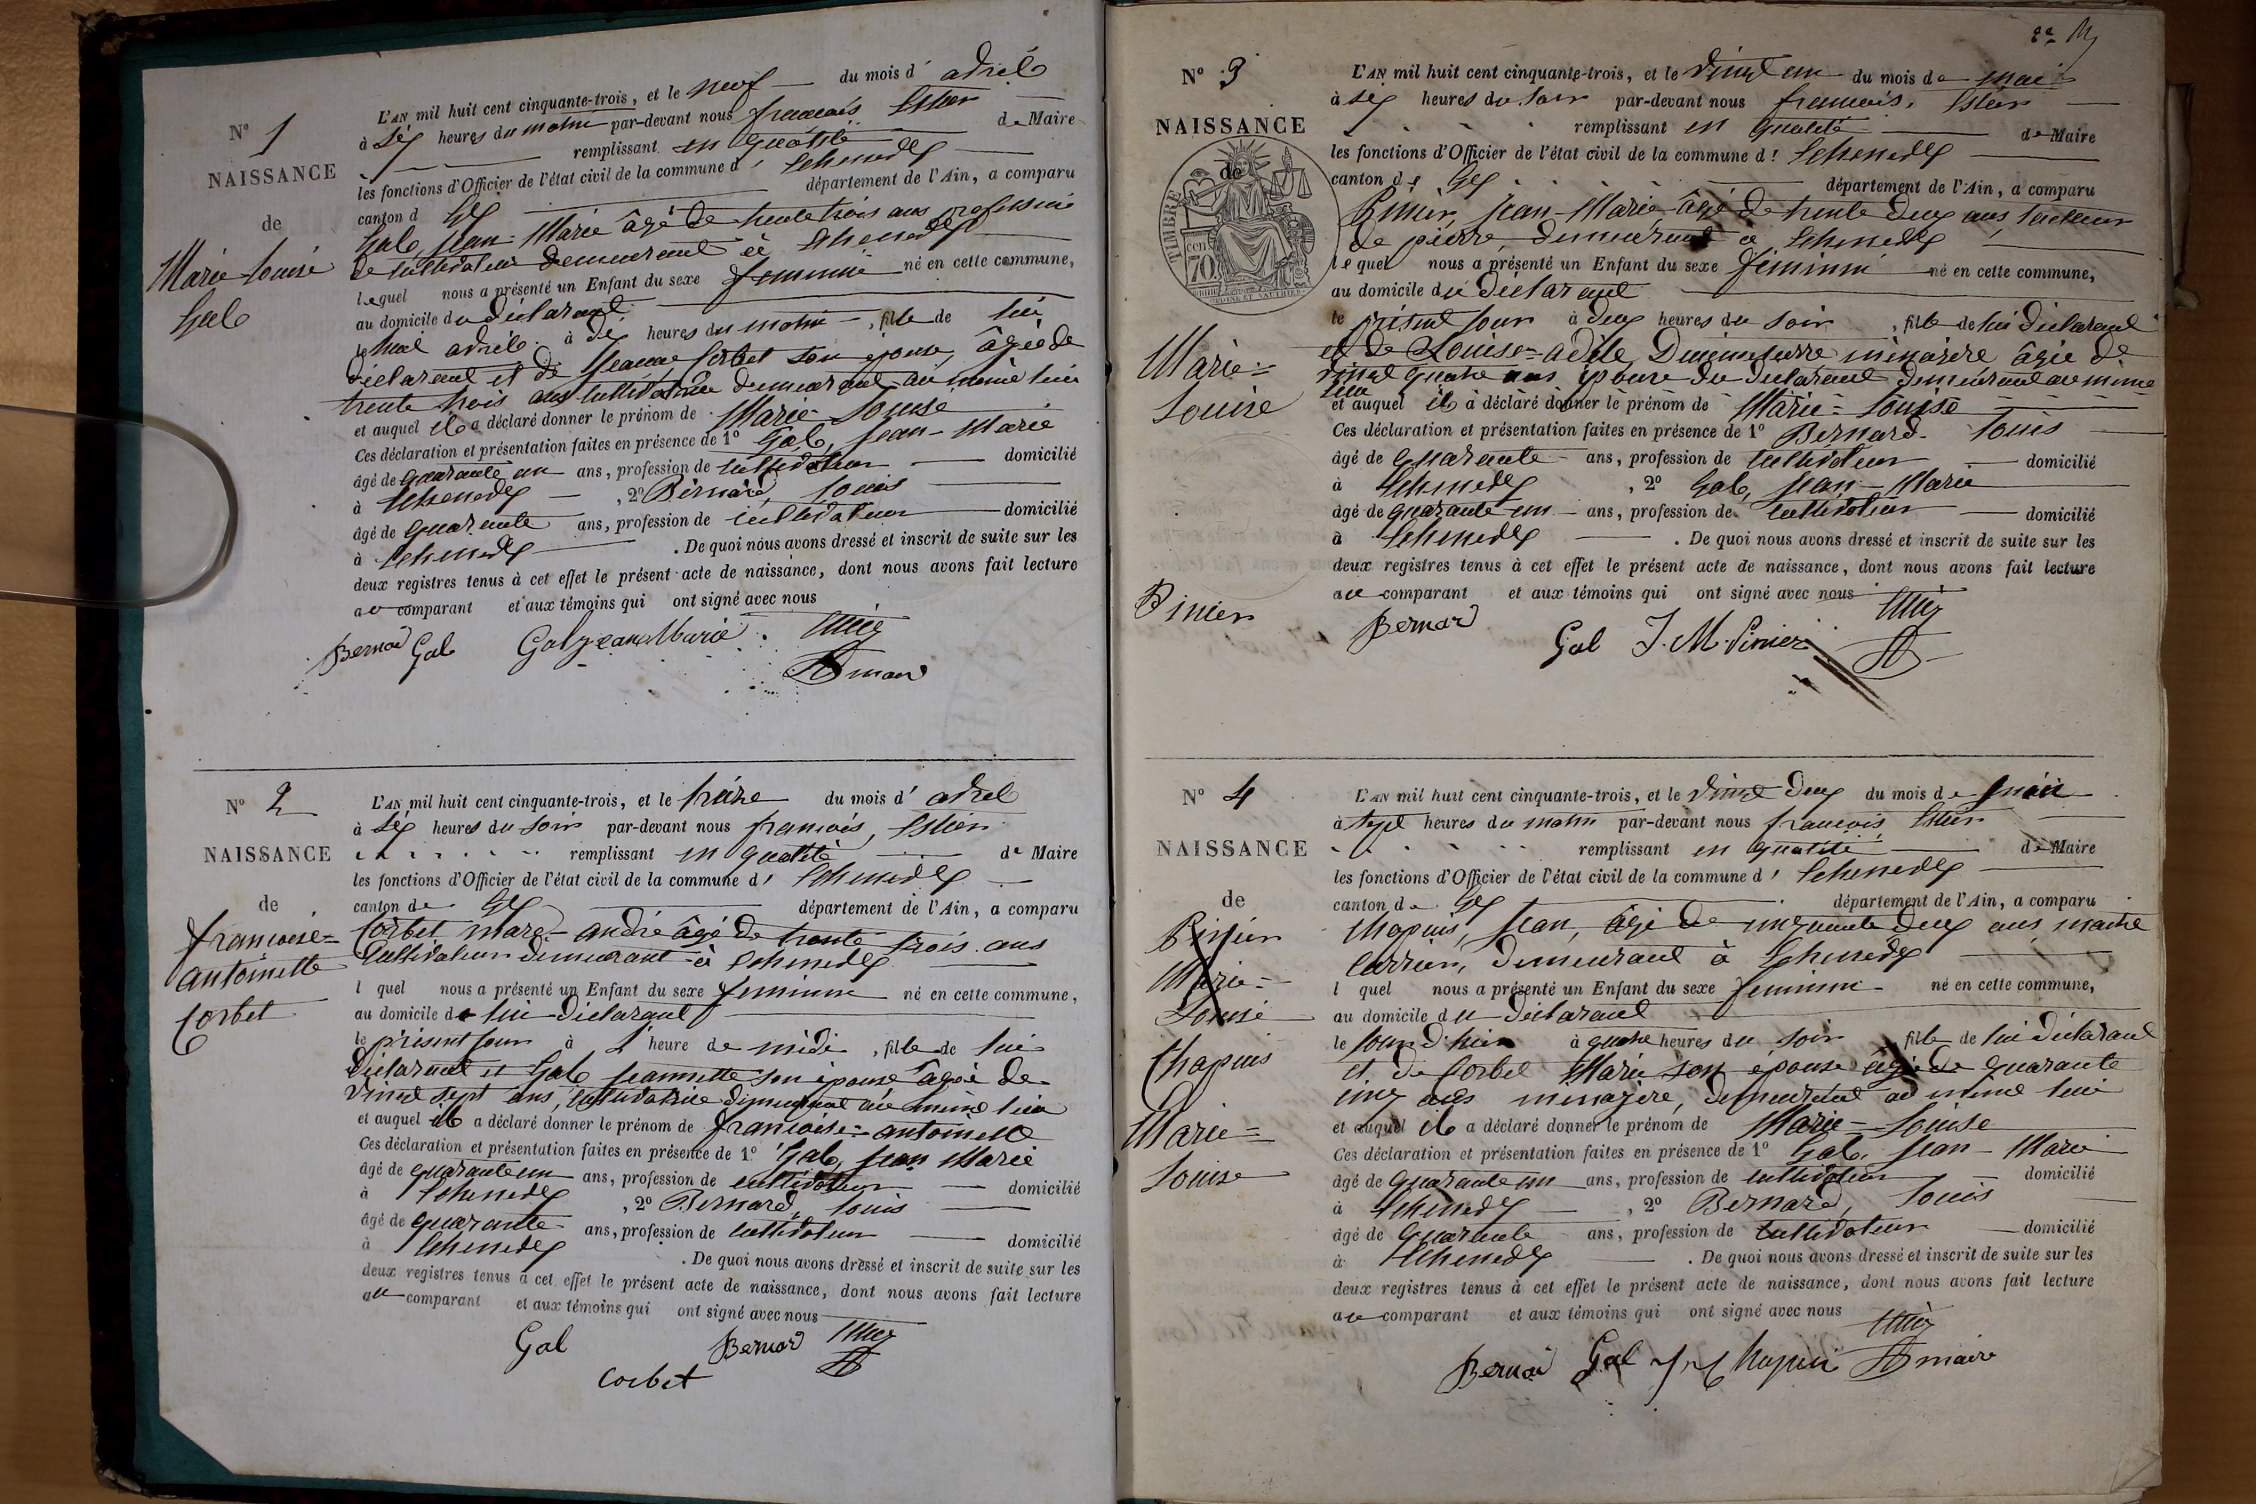 N° 1
NAISSANCE
de
Marie Louise
Gal
L'AN mil huit cent cinquante-trois, et le neuf du mois d' avril
à six heures du matin par-devant nous françois
remplissant en qualité de Maire
les fonctions d'Officier de l'état civil de la commune d' Echenevex
canton d Gex département de l'Ain, a comparu
Gal, Jean-Marie âgé de trente trois ans profession
de cultivateur demeurant à Echenevex
lequel nous a présenté un Enfant du sexe feminin né en cette commune,
au domicile du déclarant
le huit avril à dix heures du matin, fille de lui
déclarant et de Jeanne Corbet son épouse, âgée de
trente trois ans cultivatrice demeurant au même lieu
et auquel il a déclaré donner le prénom de Marie-Louise
Ces déclaration et présentation faites en présence de 1° Gal, Jean-Marie
âgé de quarante un ans, profession de cultivateur domicilié
à Echenevex, 2° Bernard, Louis
âgé de quarante ans, profession de cultivateur domicilié
à Echenevex. De quoi nous avons dressé et inscrit de suite sur les
deux registres tenus à cet effet le présent acte de naissance, dont nous avons fait lecture
au comparant et aux témoins qui ont signé avec nous
Bernard Gal Gal jean Marie
N° 2
NAISSANCE
de
françoise=
antoinette
Corbet
L'AN mil huit cent cinquante-trois, et le treize du mois d' avril
à six heures du soir par-devant nous françois,
remplissant en qualité de Maire
les fonctions d'Officier de l'état civil de la commune d' Echenevex
canton de Gex département de l'Ain, a comparu
Corbet Marc-andré âgé de trente trois ans
Cultivateur demeurant à Echenevex
l quel nous a présenté un Enfant du sexe feminin né en cette commune,
au domicile de lui déclarant
le présent jour à 1 heure de midi, fille de lui
déclarant et Gal jeannette son épouse âgée de
vingt sept ans, cultivatrice demeurant au même lieu
et auquel il a déclaré donner le prénom de françoise=antoinette
Ces déclaration et présentation faites en présence de 1° Gal, Jean Marie
âgé de quarante un ans, profession de cultivateur domicilié
à Echenevex, 2° Bernard, Louis
âgé de quarante ans, profession de cultivateur domicilié
à Echenevex. De quoi nous avons dressé et inscrit de suite sur les
deux registres tenus à cet effet le présent acte de naissance, dont nous avons fait lecture
au comparant et aux témoins qui ont signé avec nous
Gal Bernard
Corbet
N° 3
NAISSANCE
de
TIMBRE
70
Marie=
Louise
Pinier
L'AN mil huit cent cinquante-trois, et le vingt un du mois de mai
à six heures du soir par-devant nous françois,
remplissant en qualité de Maire
les fonctions d'Officier de l'état civil de la commune d' Echenevex
canton de Gex département de l'Ain, a comparu
Pinier, Jean-Marie, âgé de trente deux ans, tailleur
de pierre, demeurant à Echenevex
lequel nous a présenté un Enfant du sexe féminin né en cette commune,
au domicile du déclarant
le présent jour à deux heures du soir, fille de lui déclarant
et de Louise=adèle ménagère âgée de
vingt quatre ans épouse du déclarant demeurant au même
lieu
et auquel il a déclaré donner le prénom de Marie=Louise
Ces déclaration et présentation faites en présence de 1° Bernard Louis
âgé de quarante ans, profession de cultivateur domicilié
à Echenevex, 2° Gal, Jean-Marie
âgé de quarante un ans, profession de cultivateur domicilié
à Echenevex. De quoi nous avons dressé et inscrit de suite sur les
deux registres tenus à cet effet le présent acte de naissance, dont nous avons fait lecture
au comparant et aux témoins qui ont signé avec nous
Bernard Gal J. M. Pinier
N° 4
NAISSANCE
de
Pinier
Marie=
Louise
Chapuis
Marie=
Louise
L'AN mil huit cent cinquante-trois, et le vingt deux du mois de
à sept heures du matin par-devant nous françois
remplissant en qualité de Maire
les fonctions d'Officier de l'état civil de la commune d' Echenevex
canton de Gex département de l'Ain, a comparu
Chapuis, Jean, âgé de cinquante deux ans, maître
Carrier, demeurant à Echenevex
l quel nous a présenté un Enfant du sexe feminin né en cette commune,
au domicile du déclarant
le jour d'hier à quatre heures du soir, fille de lui déclarant
et de Corbet Marie son épouse âgée de quarante
cinq ans ménagère, demeurant au même lieu
et auquel il a déclaré donner le prénom de Marie-Louise
Ces déclaration et présentation faites en présence de 1° Gal, Jean-Marie
âgé de quarante un ans, profession de cultivateur domicilié
à Echenevex, 2° Bernard, Louis
âgé de quarante ans, profession de cultivateur domicilié
à Echenevex. De quoi nous avons dressé et inscrit de suite sur les
deux registres tenus à cet effet le présent acte de naissance, dont nous avons fait lecture
au comparant et aux témoins qui ont signé avec nous
Bernard Gal Chapuis maire